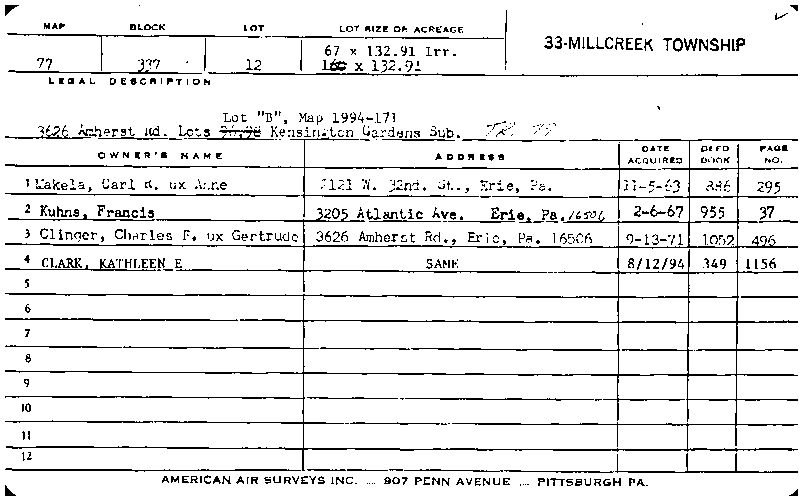 MAP BLOCK LOT LOT SIZE OR ACREAGE
33-MILLCREEK TOWNSHIP
67 x 132.91 Irr.
77 337 12 160 x 132.91
LEGAL DESCRIPTION
Lot "B", Map 1994-171
3626 Amherst Rd. Lots Kensington Gardens Sub.
OWNER'S NAME ADDRESS DATE ACQUIRED DEED BOOK PAGE NO.
1 Makela, Carl R. ux Anne 2121 W. 32nd. St., Erie, Pa. 11-5-63 886 295
2 Kuhns, Francis 3205 Atlantic Ave. Erie, Pa. 16506 2-6-67 955 37
3 Clinger, Charles F. ux Gertrude 3626 Amherst Rd., Erie, Pa. 16506 9-13-71 1052 496
4 CLARK, KATHLEEN E SAME 8/12/94 349 1156
5
6
7
8
9
10
11
12
AMERICAN AIR SURVEYS INC. ... 907 PENN AVENUE ... PITTSBURGH PA.